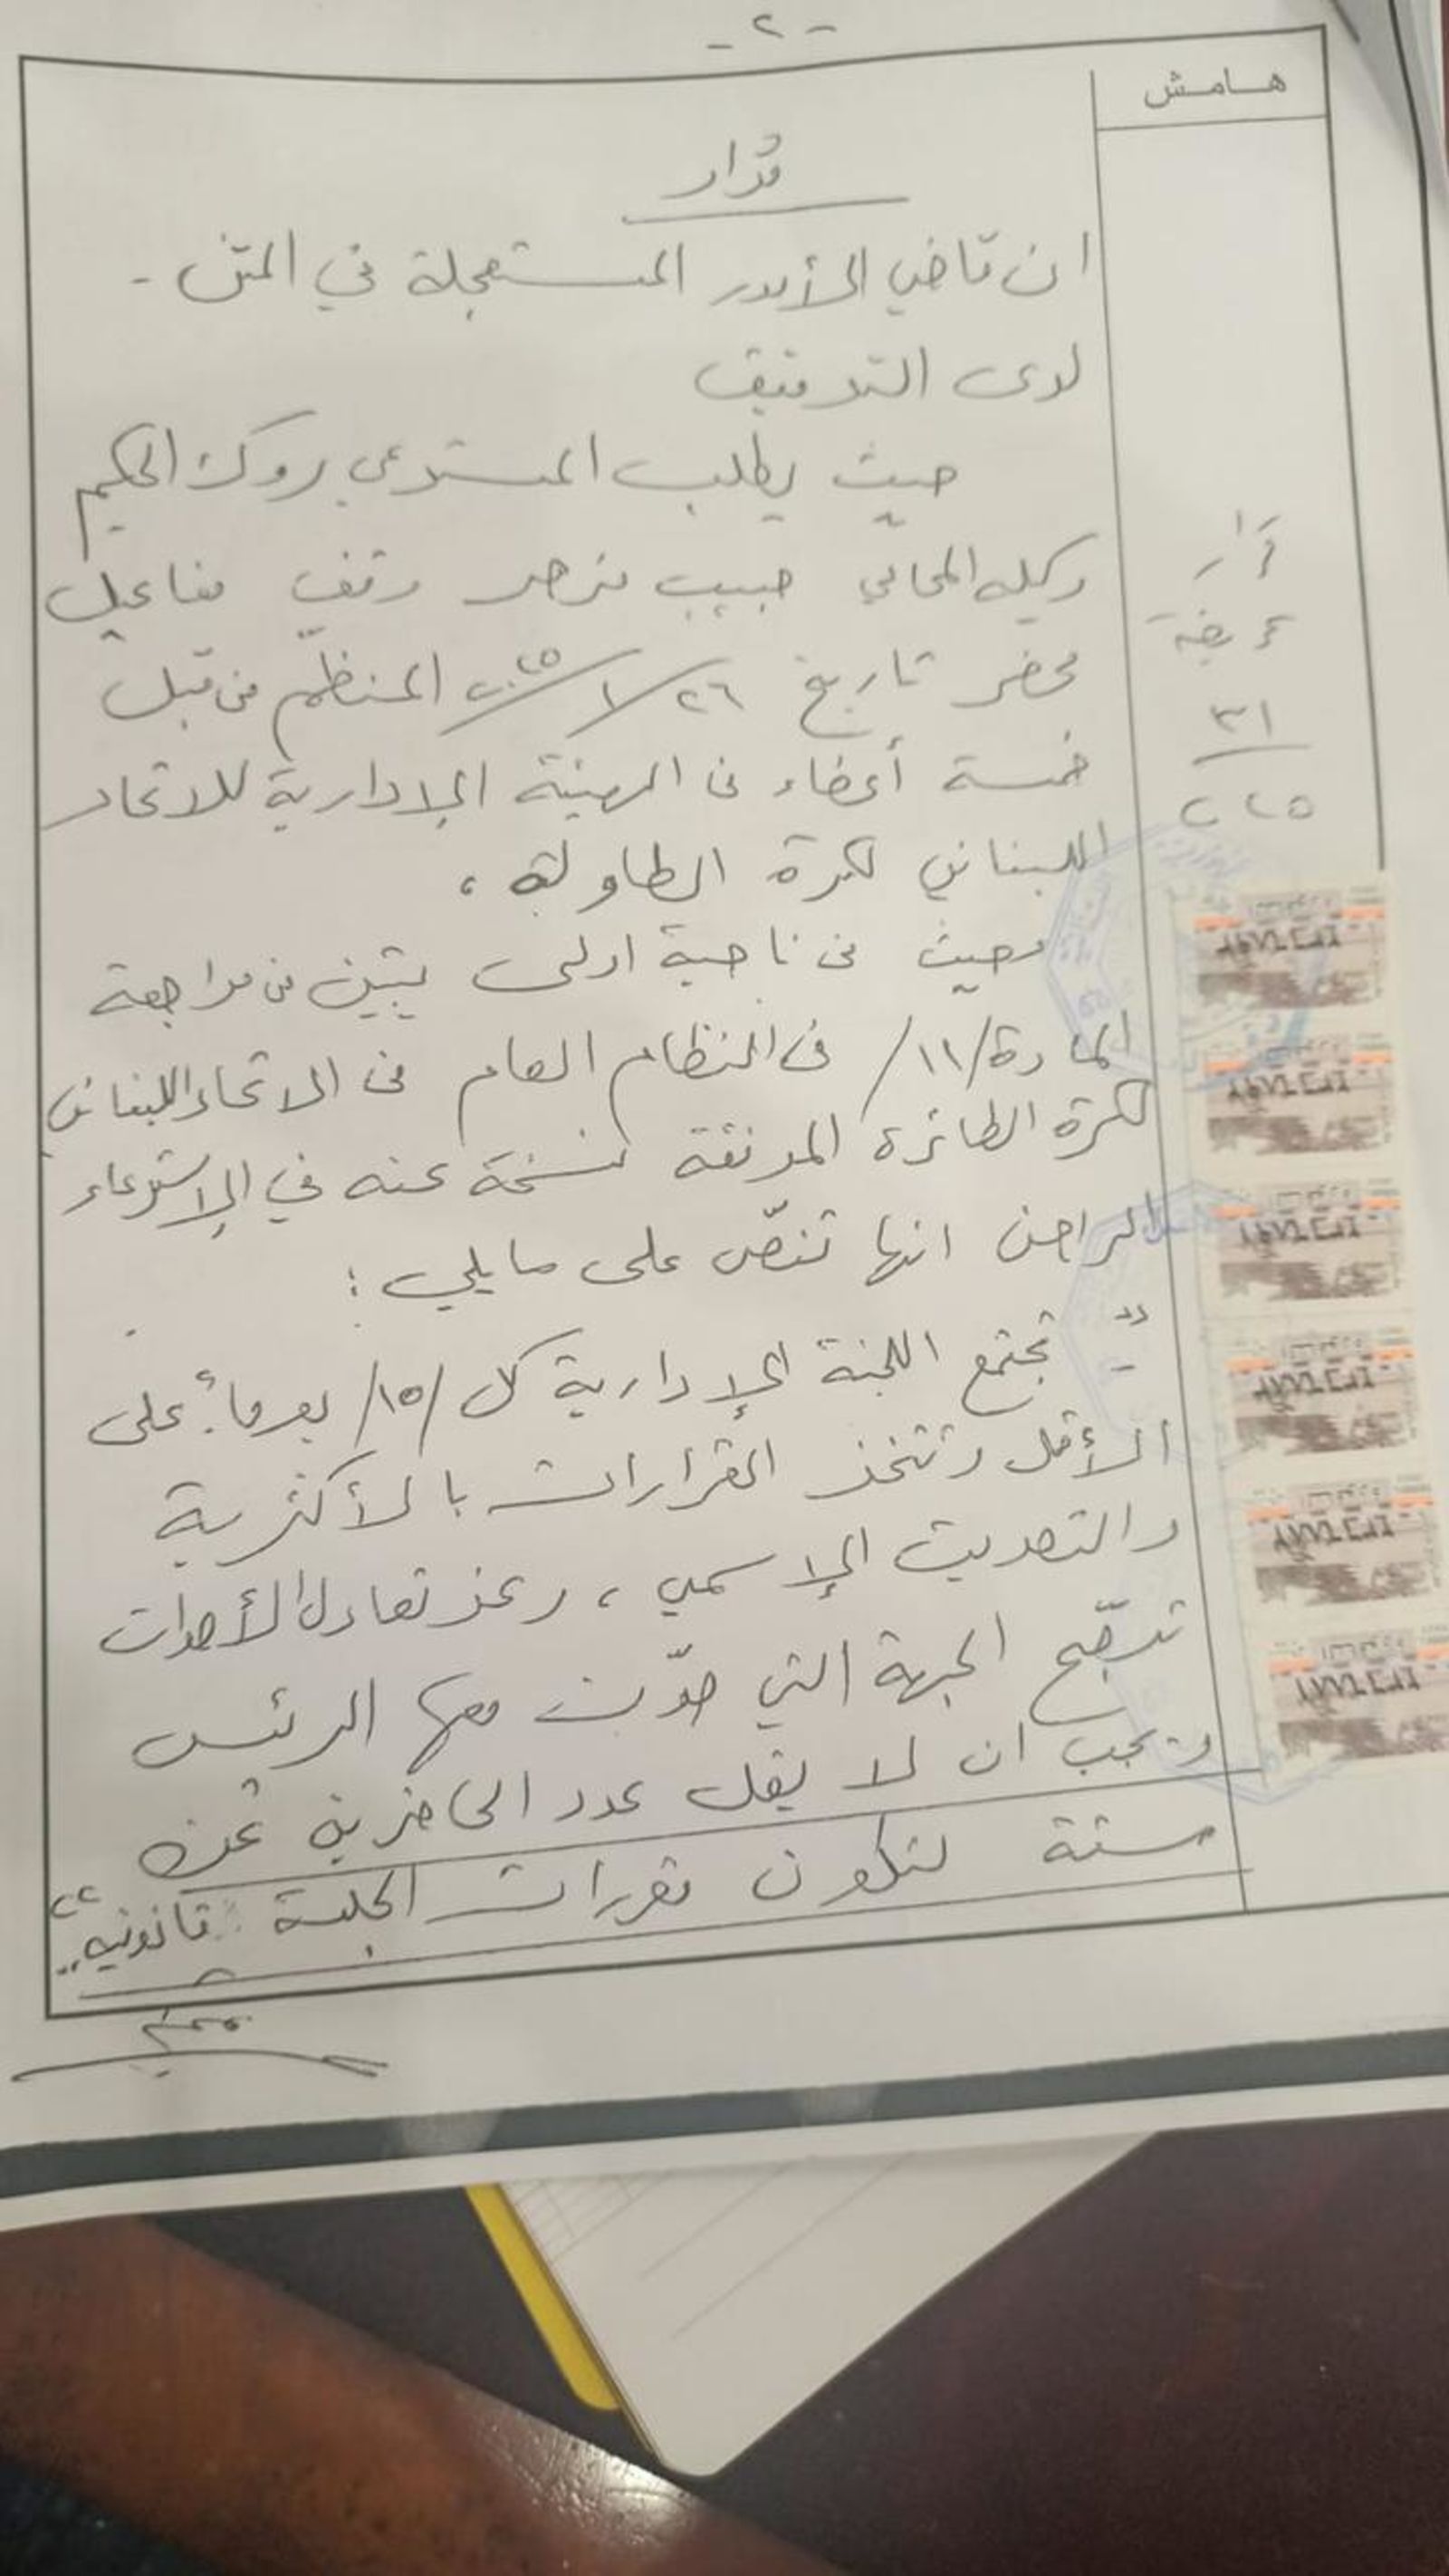 -٢-
هامش
قرار
ان قاضي الأمور المستعجلة في المتن -
لدى التدقيق
حيث يطلب المستدعي روك الحكيم
وكيله المحامي حبيب مزهر وقف مفاعيل
محضر تاريخ ٢٦/١/٢٠٢٥ المنظم من قبل
خمسة أعضاء من الهيئة الإدارية للاتحاد
اللبناني لكرة الطاولة ،
وحيث من ناحية اولى يتبين من مراجعة
المادة /١١/ من النظام العام من الاتحاد اللبناني
لكرة الطائرة المرفقة نسخة عنه في الإستدعاء
الراهن انها تنصّ على ما يلي :
"- تجتمع اللجنة الإدارية كل /١٥/ يوماً على
الأقل وتتخذ القرارات بالأكثرية
والتصويت الإسمي ، وعند تعادل الأصوات
ترجّح الجهة التي صوّت معها الرئيس
ويجب ان لا يقل عدد الحاضرين عن
ستة لتكون مقررات الجلسة قانونية"
قرار
عريضة
٣١
٢٠٢٥